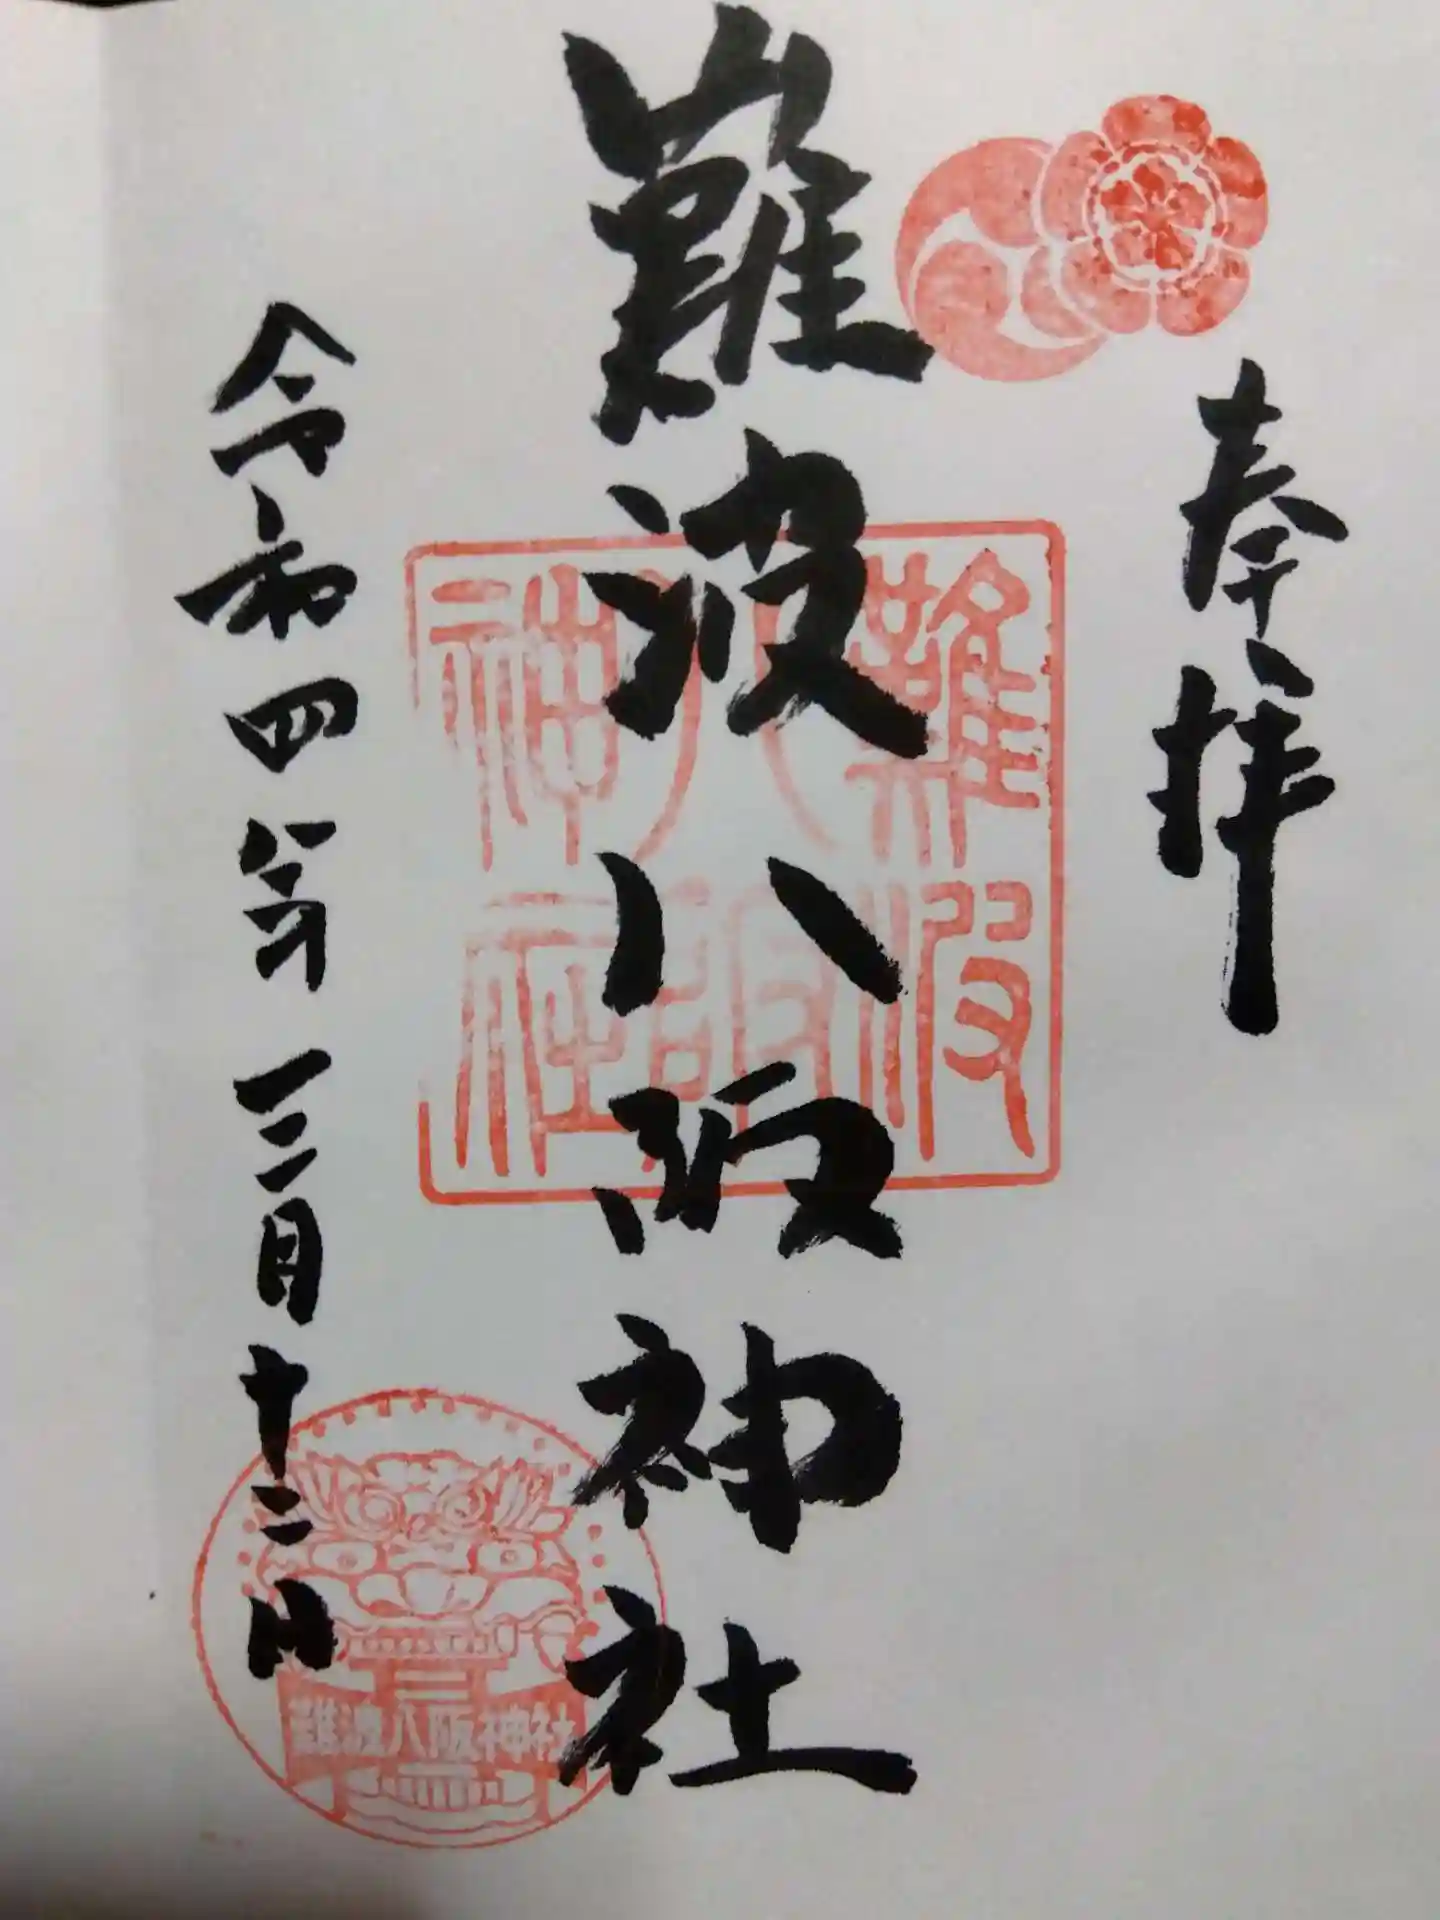 奉拝
難波八阪神社
令和四年三月十二日
難波
八阪
神社
難波八阪神社